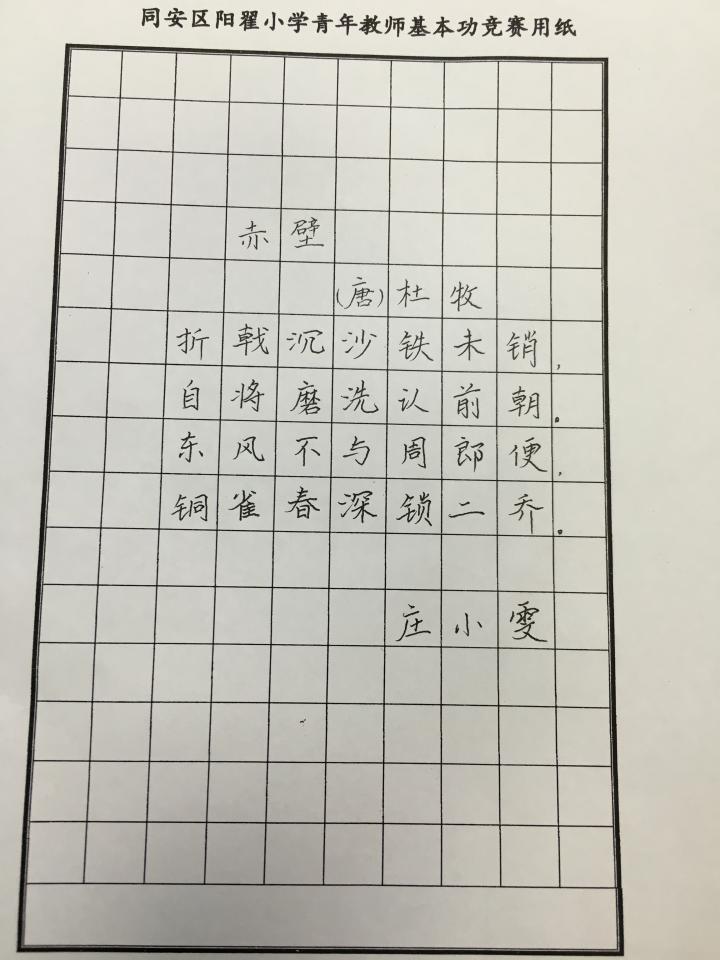 同安区阳翟小学青年教师基本功竞赛用纸
赤壁
(唐)杜牧
折戟沉沙铁未销,
自将磨洗认前朝。
东风不与周郎便,
铜雀春深锁二乔。
庄小雯